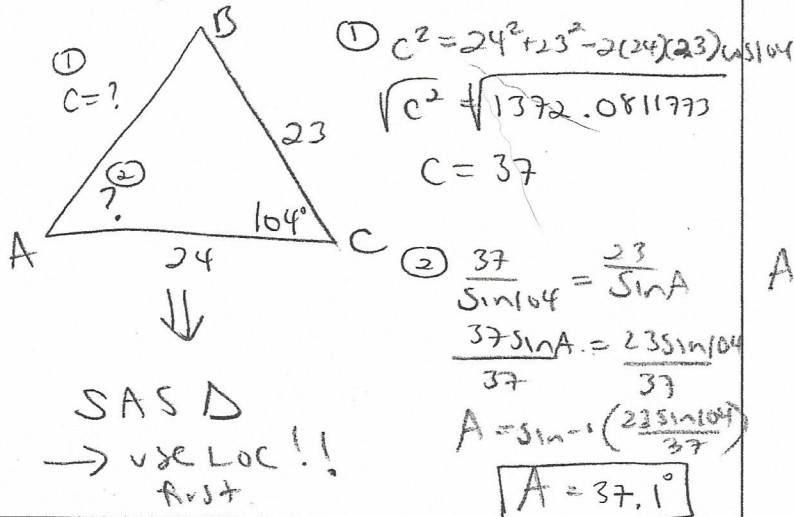 B
① C=?
23
② ?
104°
A
24
C
⇓
SAS Δ
→ use LOC!!
first
① c² = 24² + 23² - 2(24)(23)cos104
√c² = √1372.0811773
C = 37
② 37/sin104 = 23/sinA
37sinA/37 = 23sin104/37
A = sin-1(23sin104/37)
A = 37.1°
A